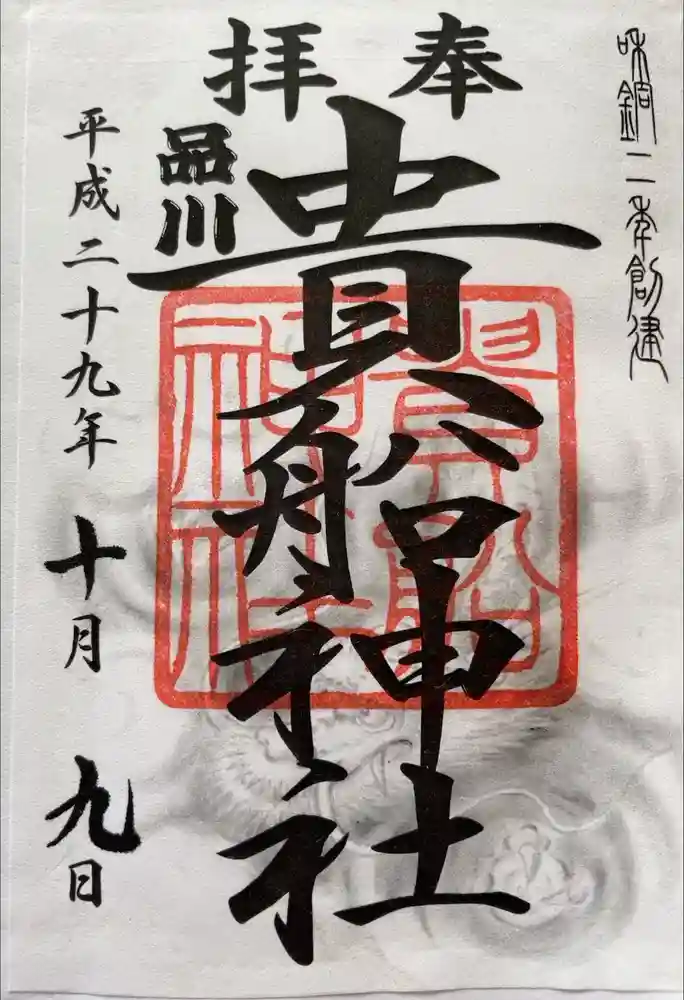 奉拝
和銅二年創建
品川
貴船神社
貴船
神社
平成二十九年十月九日